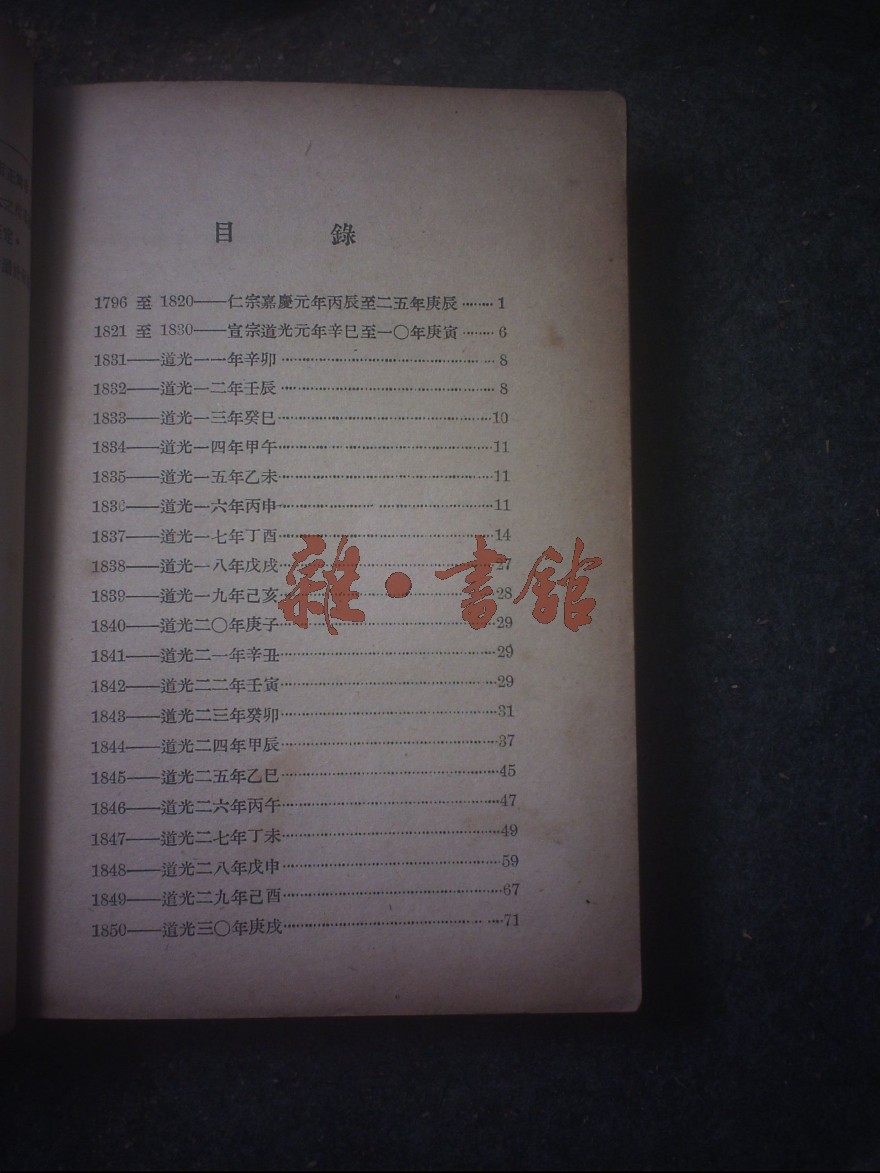 目 錄
1796 至 1820——仁宗嘉慶元年丙辰至二五年庚辰········1
1821 至 1830——宣宗道光元年辛巳至一〇年庚寅········6
1831——道光一一年辛卯········8
1832——道光一二年壬辰········8
1833——道光一三年癸巳········10
1834——道光一四年甲午········11
1835——道光一五年乙未········11
1836——道光一六年丙申········11
1837——道光一七年丁酉········14
1838——道光一八年戊戌········27
1839——道光一九年己亥········28
1840——道光二〇年庚子········29
1841——道光二一年辛丑········29
1842——道光二二年壬寅········29
1843——道光二三年癸卯········31
1844——道光二四年甲辰········37
1845——道光二五年乙巳········45
1846——道光二六年丙午········47
1847——道光二七年丁未········49
1848——道光二八年戊申········59
1849——道光二九年己酉········67
1850——道光三〇年庚戌········71
雜·書館